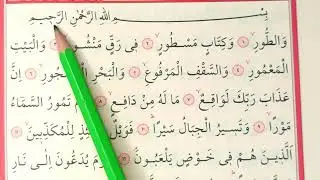 بِسْمِ اللهِ الرَّحْمٰنِ الرَّحِيمِ
وَالطُّورِۙ ﴿١﴾ وَكِتَابٍ مَسْطُورٍۙ ﴿٢﴾ فِى رَقٍّ مَنْشُورٍۙ وَالْبَيْتِ
الْمَعْمُورِۙ ﴿٤﴾ وَالسَّقْفِ الْمَرْفُوعِۙ ﴿٥﴾ وَالْبَحْرِ اِنَّ
عَذَابَ رَبِّكَ لَوَاقِعٌۙ ﴿٧﴾ مَا لَهُ مِنْ دَافِعٍۙ ﴿٨﴾ تَمُورُ السَّمَٓاءُ
مَوْرًاۙ ﴿٩﴾ وَتَسِيرُ الْجِبَالُ سَيْرًاۜ ﴿١٠﴾ فَوَيْلٌ لِلْمُكَذِّبِينَۙ ﴿١١﴾
اَلَّذِينَ هُمْ فِى خَوْضٍ يَلْعَبُونَۢ ﴿١٢﴾ يُدَعُّونَ اِلٰى نَارِ